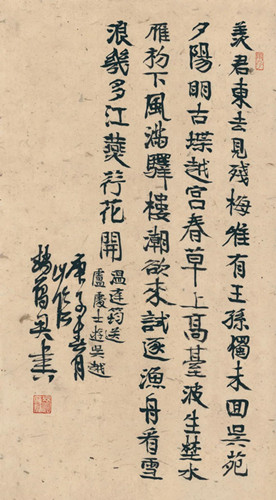 羨君東去見殘梅惟有王孫獨未回吳苑
夕陽明古堞越宮春草上高臺波生埜水
雁初下風滿驛樓潮欲來試逐漁舟看雪
浪幾多江燕荇花開
温庭筠送
盧處士遊吳越
庚子春月
書